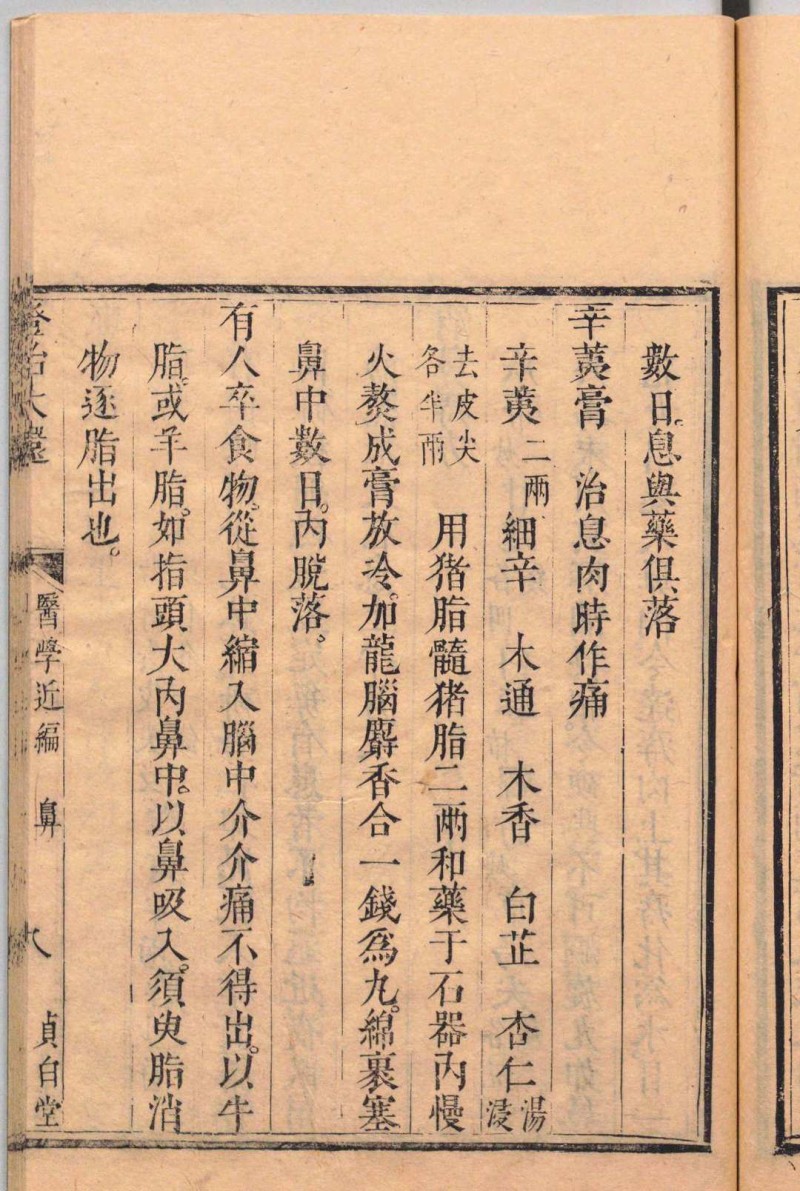 數日。息與藥俱落
辛荑膏　治息肉時作痛
辛荑二兩　細辛　木通　木香　白芷　杏仁湯浸
去皮尖各半兩　用猪脂髓猪脂二兩和藥于石器內慢
火熬成膏放冷。加龍腦麝香合一錢爲丸。綿裹塞
鼻中數日。內脫落。
有人卒食物。從鼻中縮入腦中介介痛不得出。以牛
脂。或羊脂。如指頭大內鼻中。以鼻吸入。須臾脂消
物逐脂出也。
證治大還　醫學近編　鼻　貞白堂